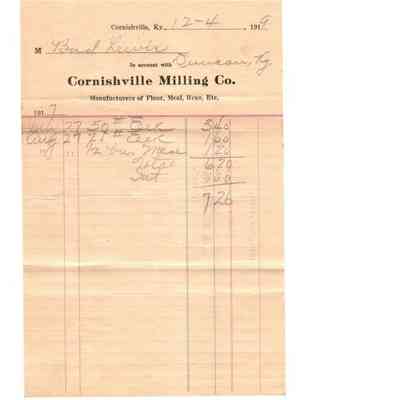 Cornishville, Ky. 12-4 1919
M Bud Lewis
In account with Duncan, Ky
Cornishville Milling Co.
Manufacturers of Flour, Meal, Bran, Etc.
1917
July 27 50# 5 40
Aug 29 1 60
" " 1/2 Bus, Meal 1 20
6 20
Int 1 00
7 20